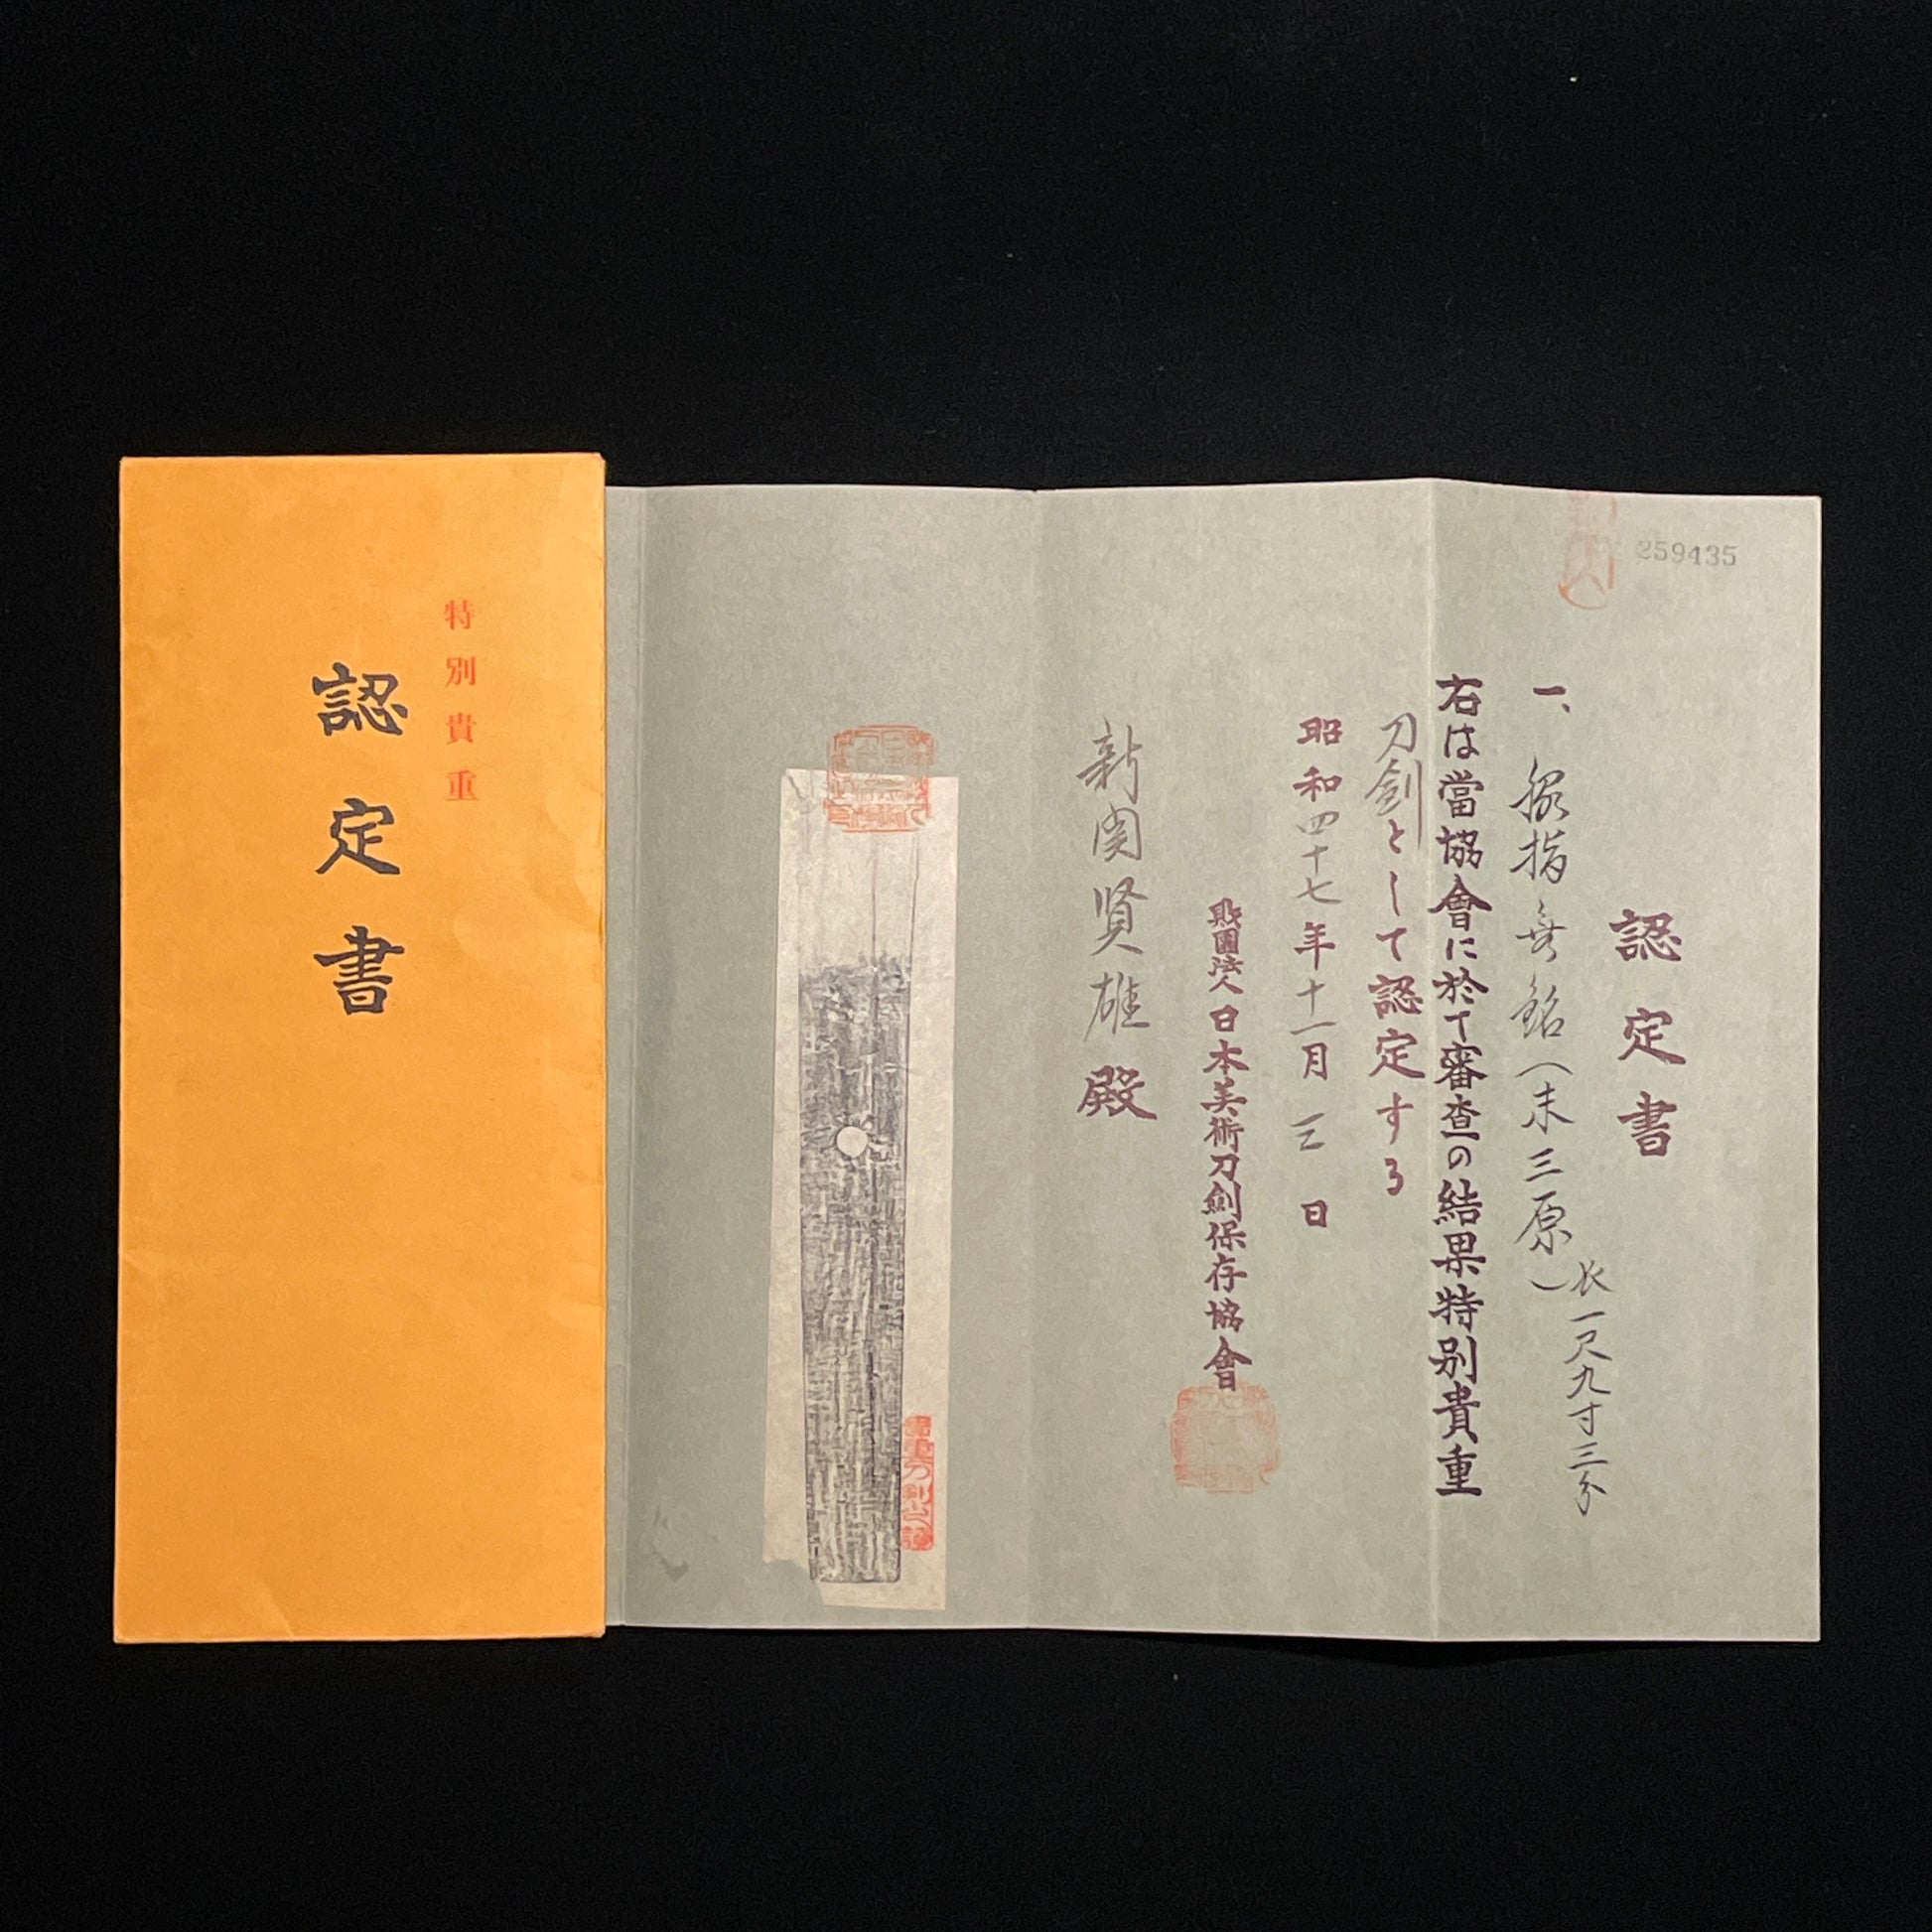 259435
認定書
一、脇指 無銘(末三原)
長一尺九寸三分
右は當協會に於て審査の結果特別貴重
刀剣として認定する
昭和四十七年十一月三日
財團法人日本美術刀劍保存協會
新関賢雄殿
特別貴重
認定書